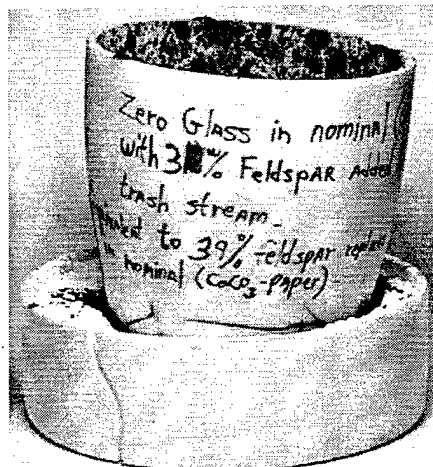 Zero Glass in nominal
with % Feldspar Added
trash stream.
to 39% Feldspar
in nominal (CaCO3-paper)